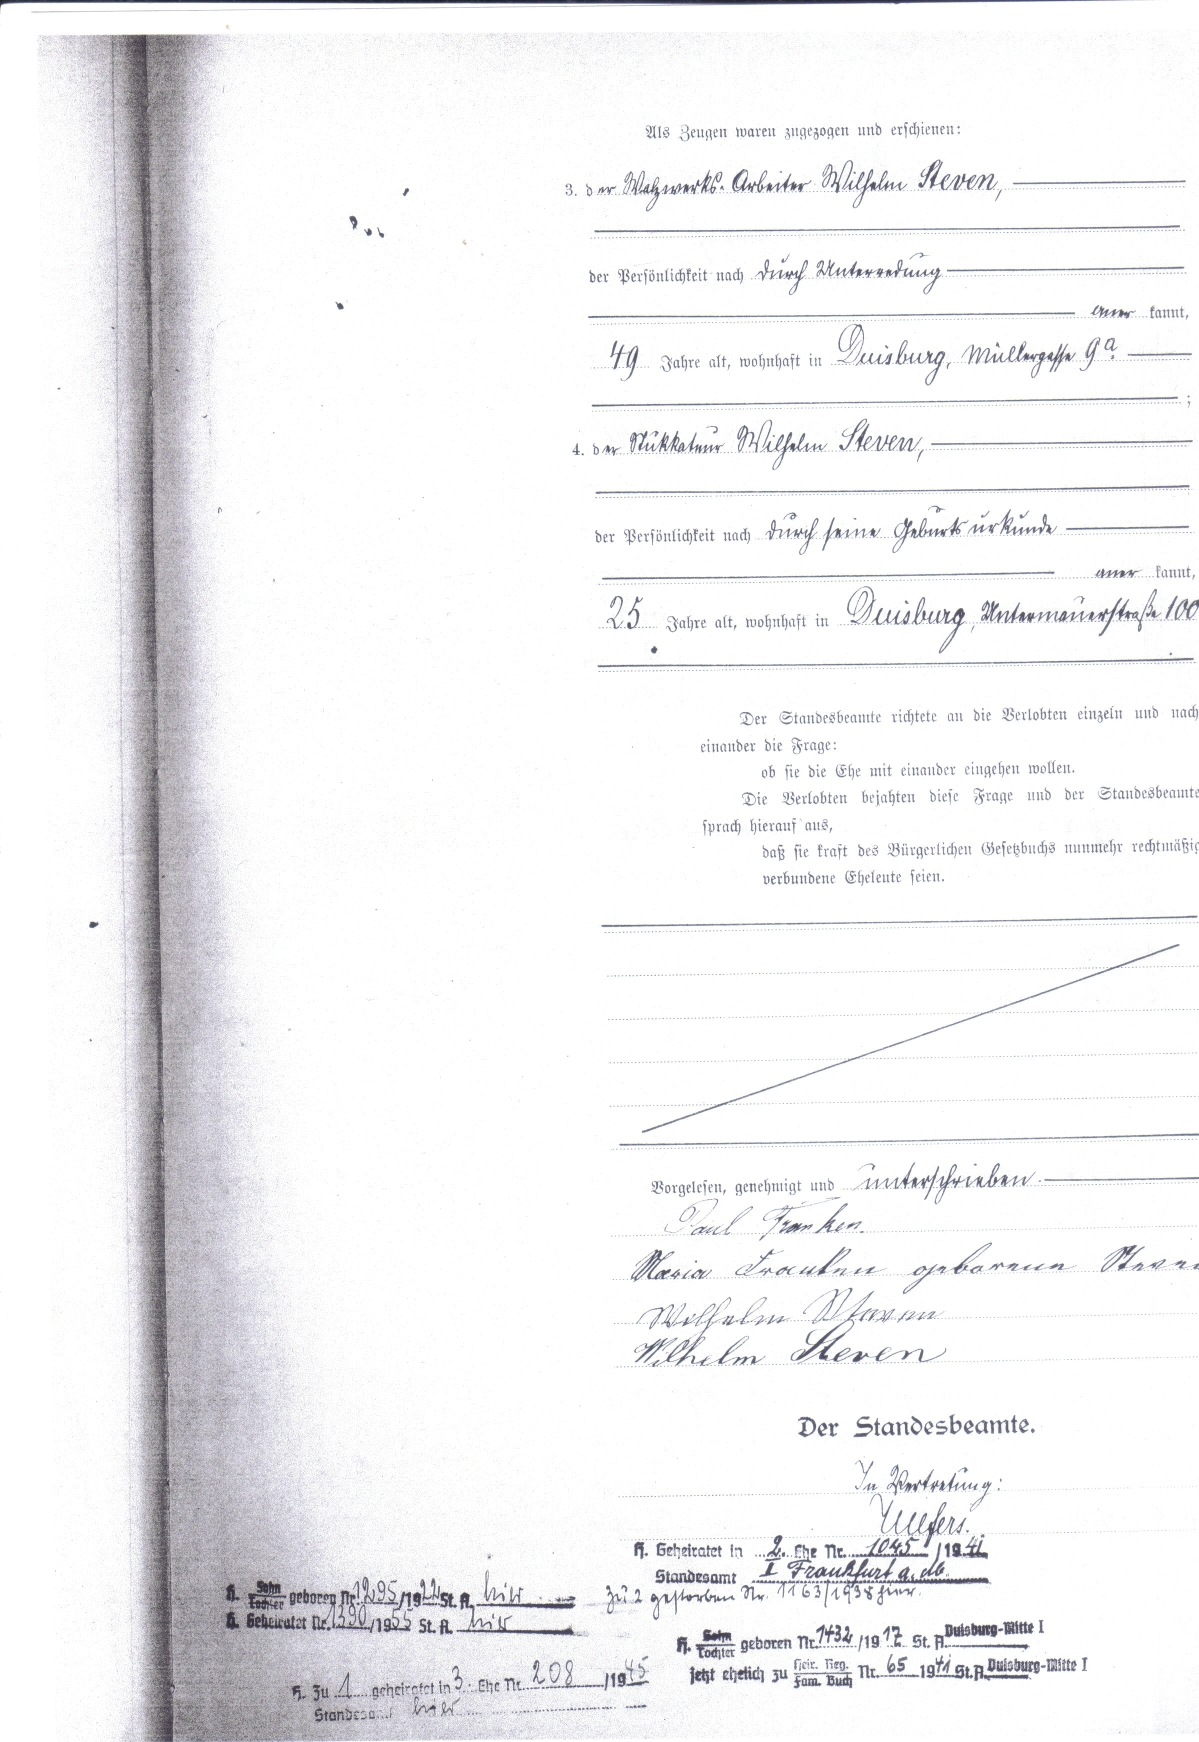 Als Zeugen waren zugezogen und erschienen:
3. der Walzwerks-Arbeiter Wilhelm Steven,
der Persönlichkeit nach durch Unterredung
aner kannt,
49 Jahre alt, wohnhaft in Duisburg, Müllergasse 9a.
;
4. der Stukkateur Wilhelm Steven,
der Persönlichkeit nach durch seine Geburtsurkunde
aner kannt,
25 Jahre alt, wohnhaft in Duisburg, Untermauerstraße 100
Der Standesbeamte richtete an die Verlobten einzeln und nach
einander die Frage:
ob sie die Ehe mit einander eingehen wollen.
Die Verlobten bejahten diese Frage und der Standesbeamte
sprach hierauf aus,
daß sie kraft des Bürgerlichen Gesetzbuchs nunmehr rechtmäßig
verbundene Eheleute seien.
Vorgelesen, genehmigt und unterschrieben.
Paul Franken.
Maria Franken geborene Steven
Wilhelm Steven
Wilhelm Steven
Der Standesbeamte.
In Vertretung:
H. Geheiratet in 2. Ehe Nr. 1045 /1941
Standesamt I Frankfurt a.
zu 2 gestorben Nr. 1163/1938 hier.
H. Sohn Tochter geboren Nr. 1295/1922 St. A. hier
H. Geheiratet Nr. 1390/1955 St. A. hier
H. Sohn Tochter geboren Nr. 1432 /1917 St. A. Duisburg-Mitte I
jetzt ehelich zu Heir. Reg. Fam. Buch Nr. 65 1941 St. A. Duisburg-Mitte I
H. Zu 1 geheiratet in 3. Ehe Nr. 208 /1945
Standesamt hier